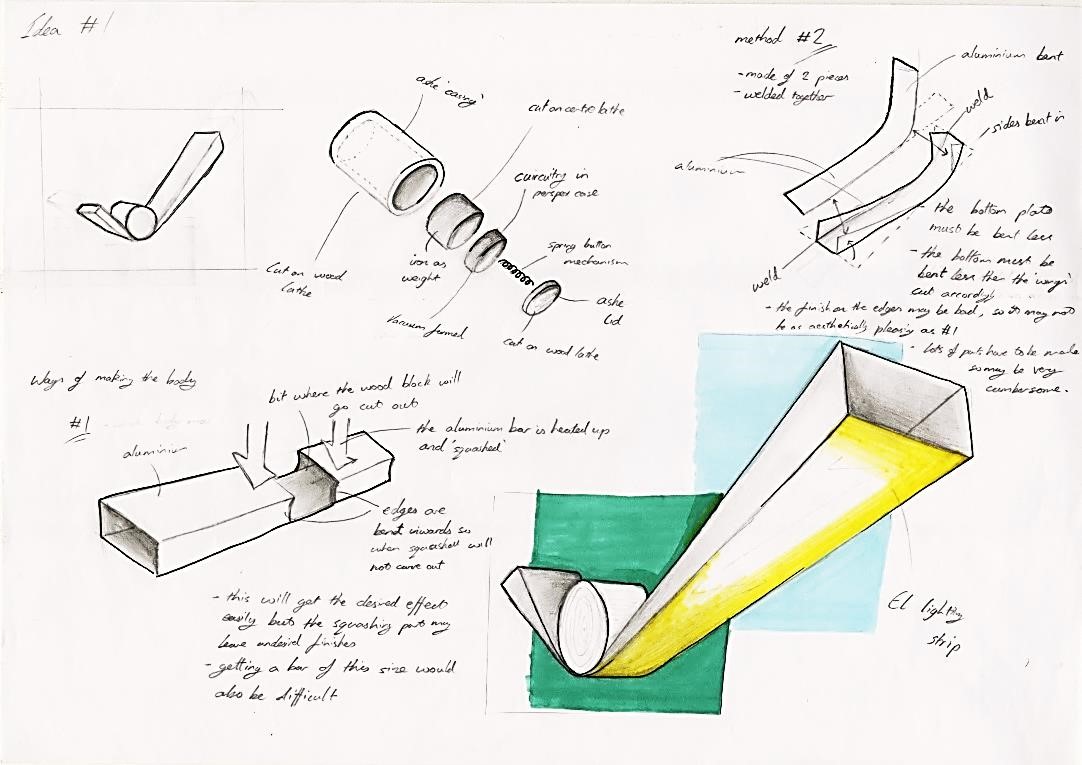 Idea #1
'ashe' casing
cut on centre lathe
circuitry in
perspex case
spring button
mechanism
ashe
lid
cut on wood lathe
Vacuum formed
iron as
weight
Cut on wood
lathe
method #2
- made of 2 pieces
- welded together
aluminium bent
weld
sides bent in
aluminium
weld
- the bottom plate
must be bent less
- the bottom must be
bent less then the 'wings'
cut accordigly
- the finish on the edges may be bad, so it may not
be as aesthetically pleasing as #1
- lots of parts have to be made
so may be very
cumbersome.
Ways of making the body
#1
aluminium
bit where the wood block will
go cut out
the aluminium bar is heated up
and 'squashed'
edges are
bent inwards so
when squashed will
not curve out
- this will get the desired effect
easily but the squashing part may
leave undesired finishes
- getting a bar of this size would
also be difficult
EL lighting
strip